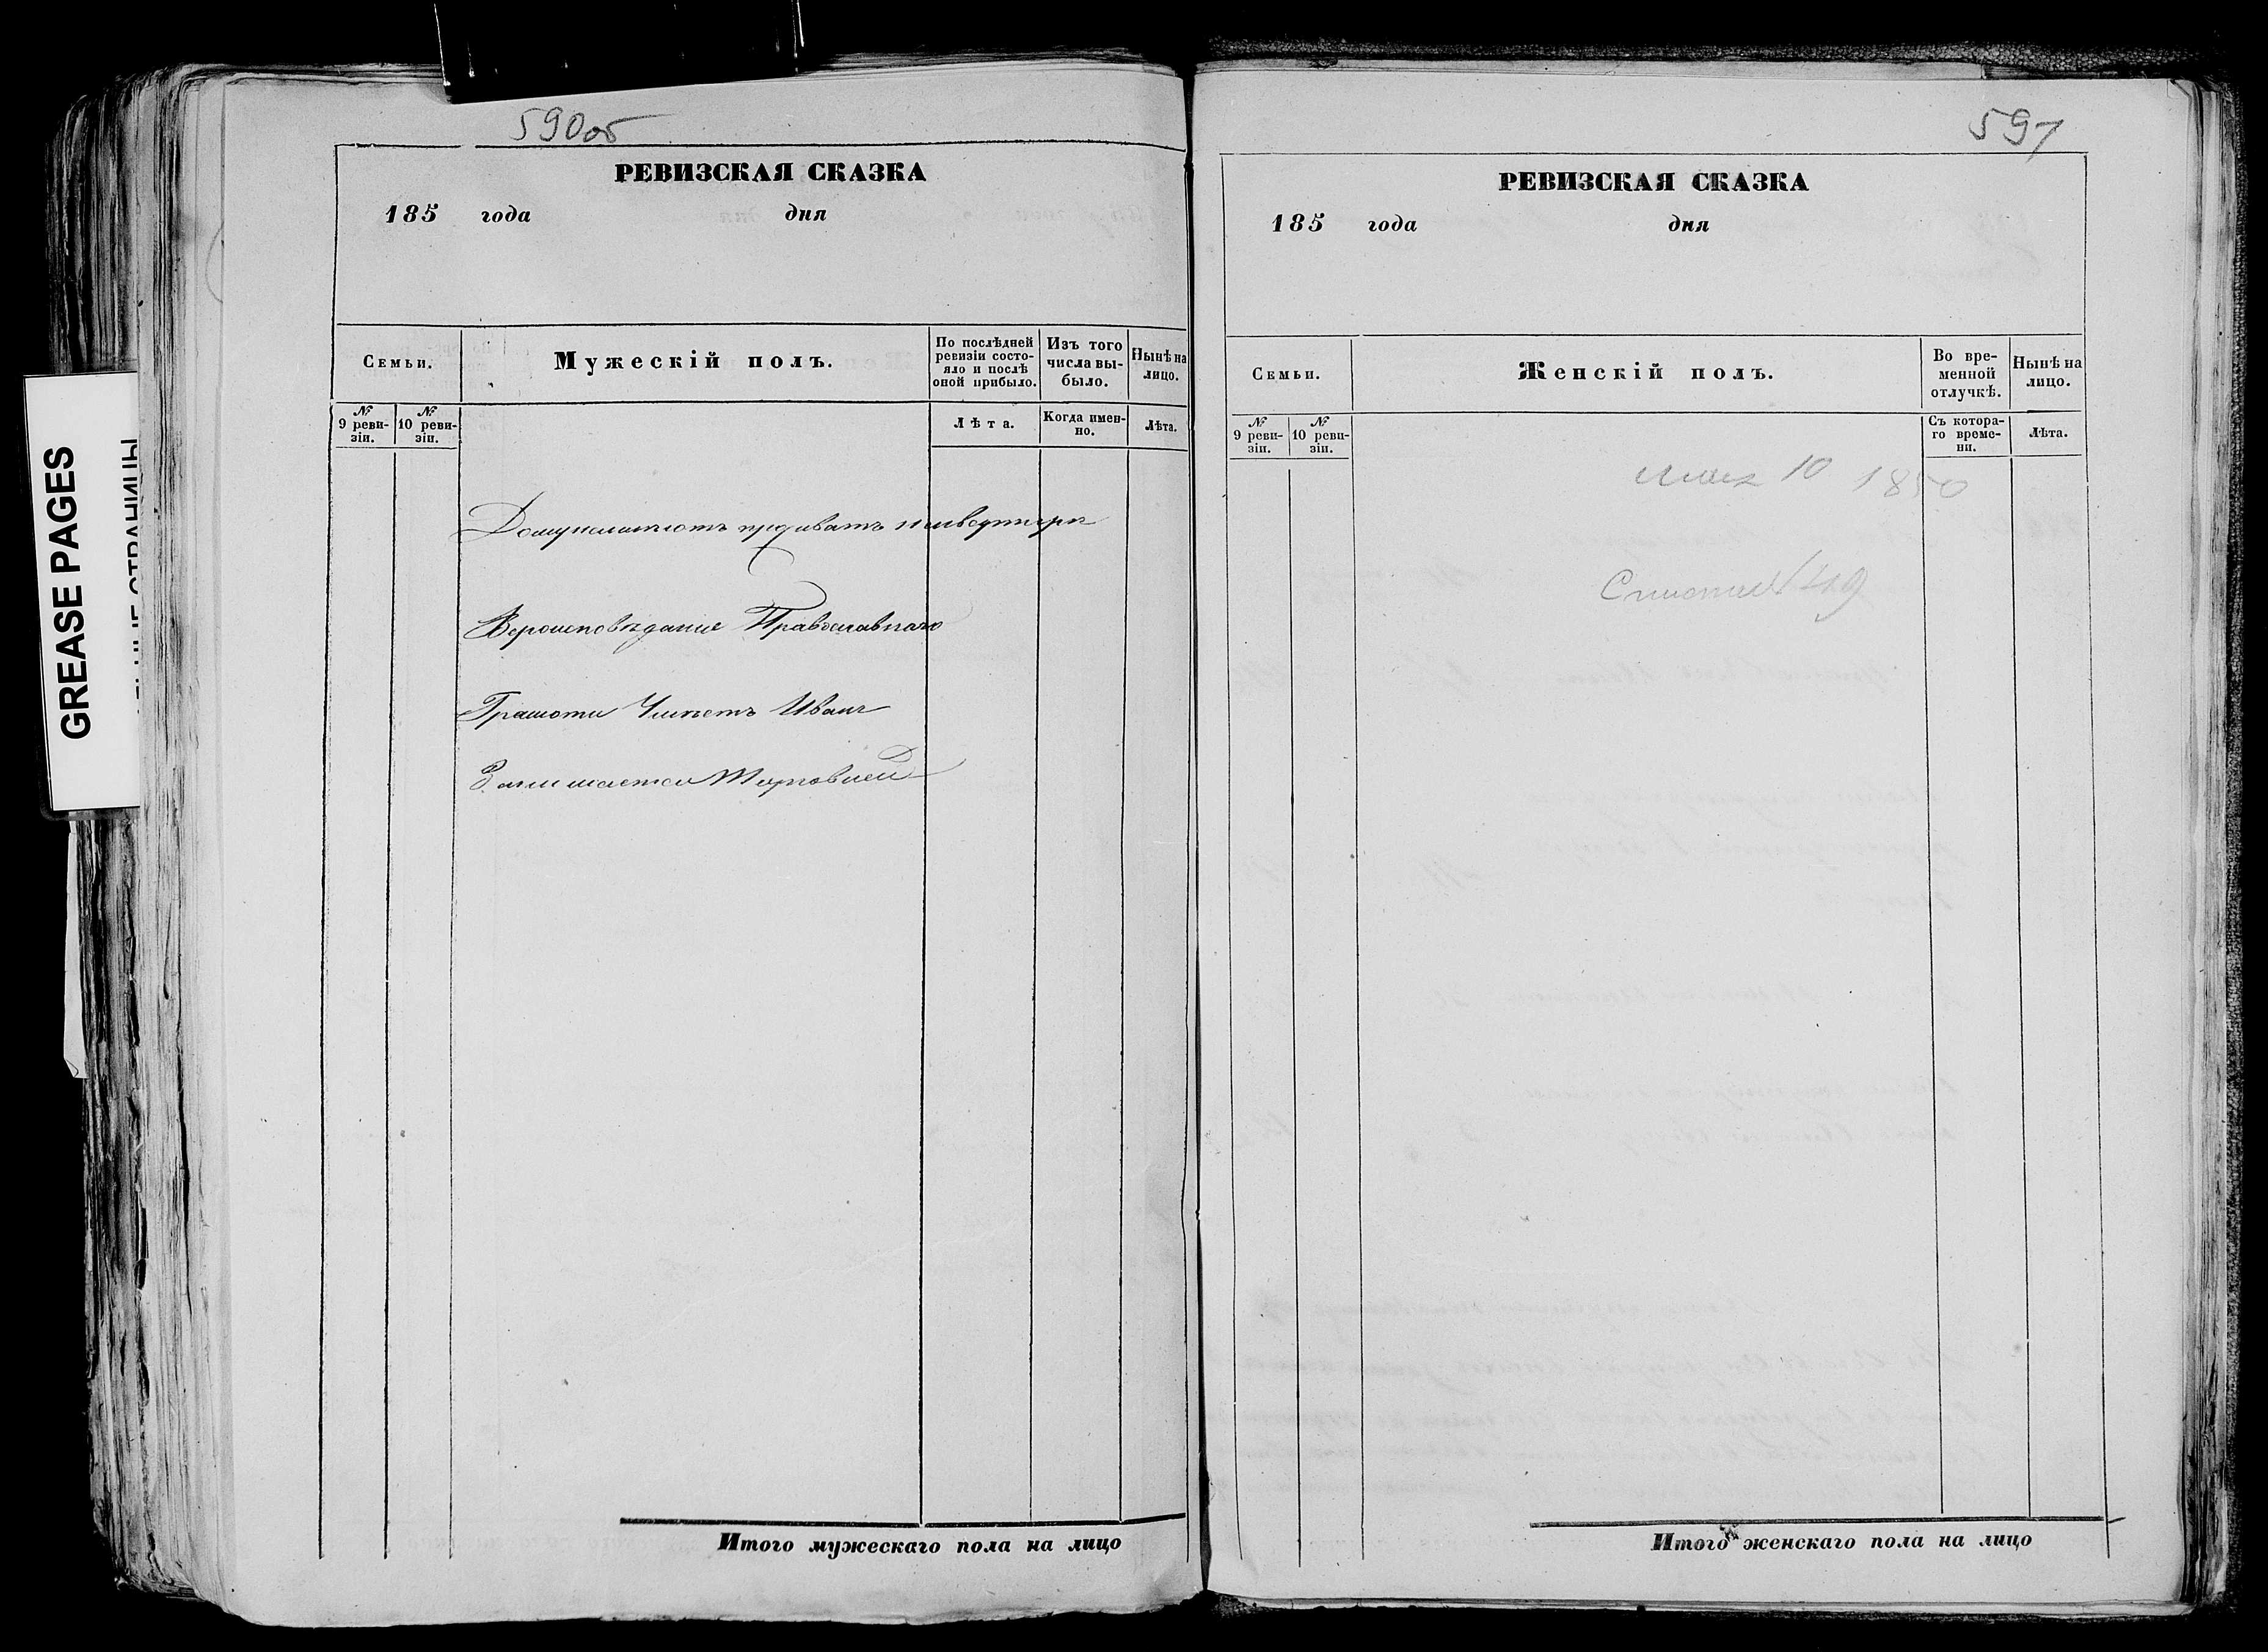 GREASE PAGES
590об
РЕВИЗСКАЯ СКАЗКА
185 года дня
Семьи.
Мужескій полъ.
По послѣдней ревизіи состояло и послѣ оной прибыло.
Изъ того числа выбыло.
Нынѣ на лицо.
№ 9 ревизіи.
№ 10 ревизіи.
Лѣта.
Когда именно.
Лѣта.
Вѣроисповѣданія Православнаго
Грамоти Умѣетъ Иванъ
Занимается Торговлей
Итого мужескаго пола на лицо
597
РЕВИЗСКАЯ СКАЗКА
185 года дня
Семьи.
Женскій полъ.
Во временной отлучкѣ.
Нынѣ на лицо.
№ 9 ревизіи.
№ 10 ревизіи.
Съ котораго времени.
Лѣта.
10 1850
Итого женскаго пола на лицо